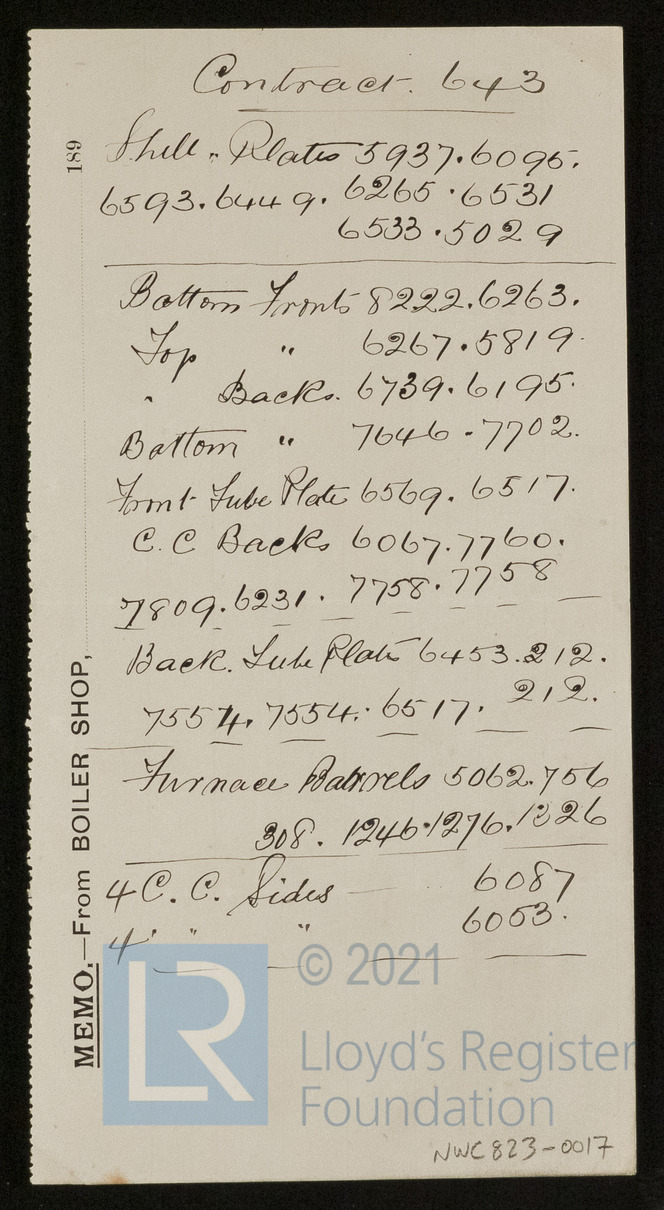 Contract. 643
Shell " Plates 5937.6095.
6593.6449. 6265.6531
6533.5029
Bottom Fronts 8222.6263.
Top " 6267.5819.
" Backs. 6739.6195.
Bottom " 7646-7702.
Front Tube Plate 6569. 6517.
C.C Backs 6067.7760.
7809.6231. 7758.7758
Back. Tube Plate 6453.212.
7554. 7554. 6517. 212.
Furnace Barrels 5062.756
308. 1246.1276.1326
4 C. C. Sides 6087
4 " " " 6053.
MEMO.—From BOILER SHOP,
189
© 2021
LR
Lloyd's Register
Foundation
NWC823-0017